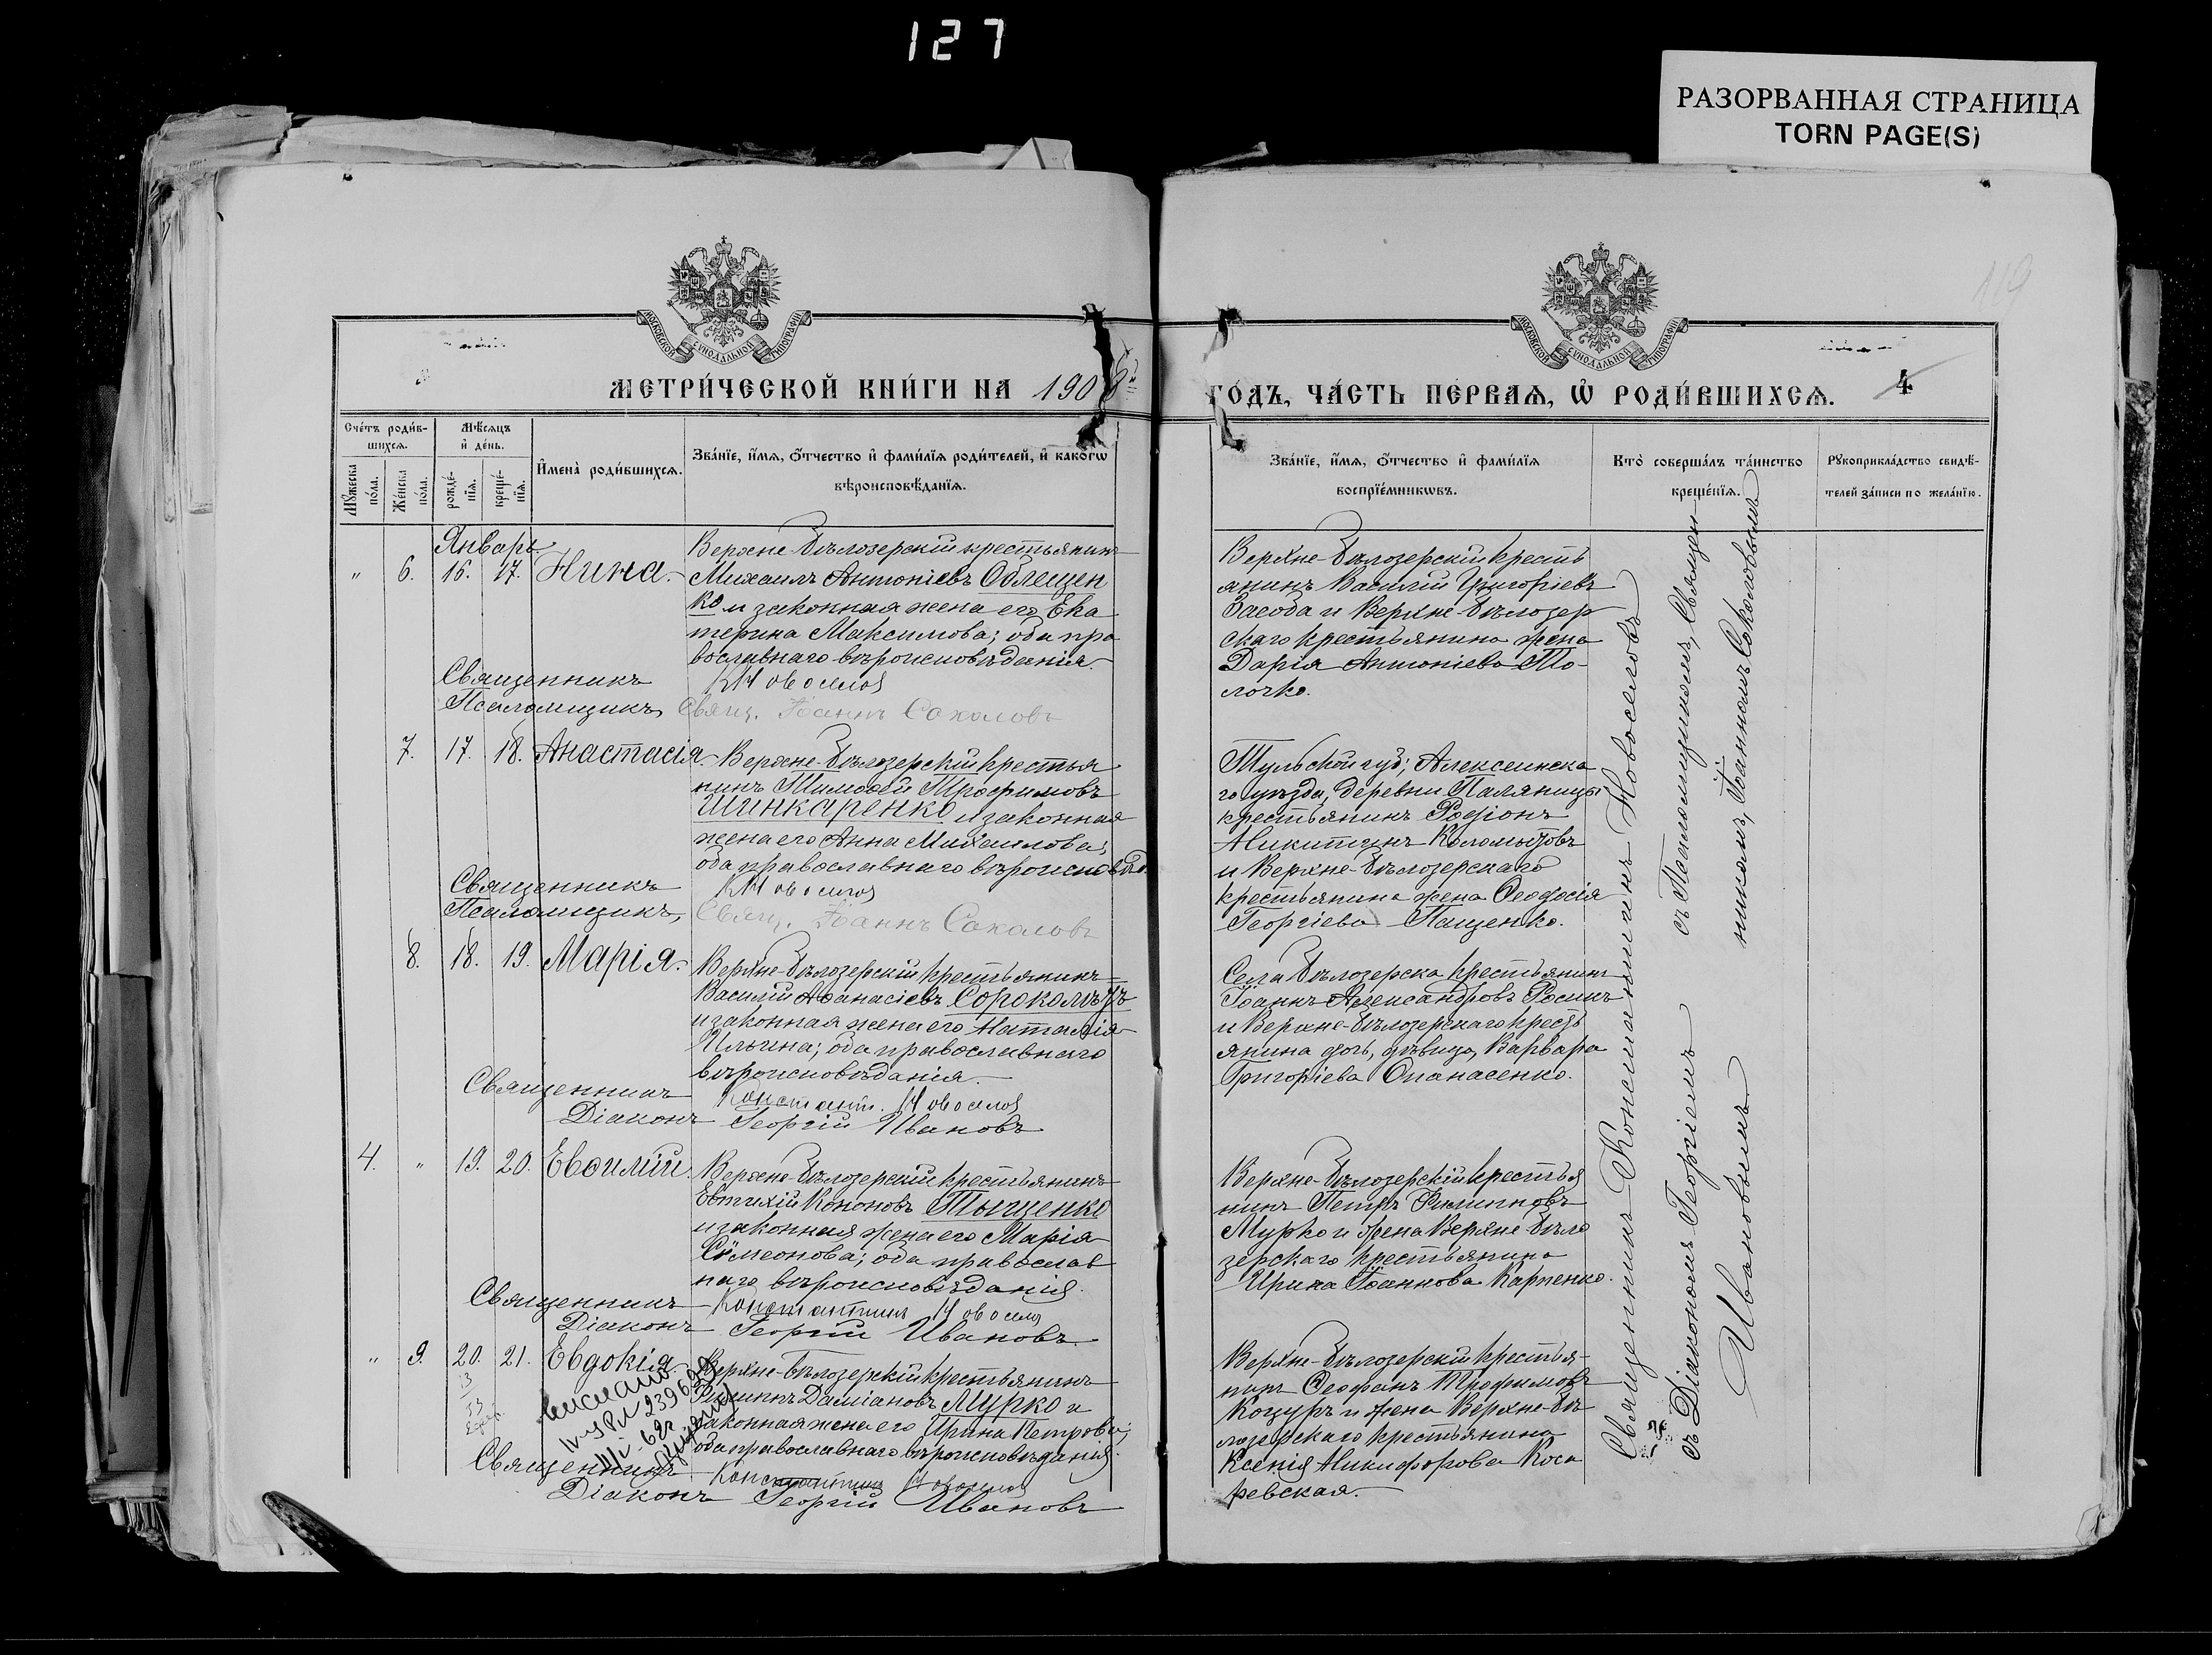 127
РАЗОРВАННАЯ СТРАНИЦА
TORN PAGE(S)
119
МОСКОВСКОЙ СѴНОДАЛЬНОЙ ТИПОГРАФІИ
МОСКОВСКОЙ СѴНОДАЛЬНОЙ ТИПОГРАФІИ
МЕТРИ́ЧЕСКОЙ КНИ́ГИ НА 190
ГО́ДЪ, ЧА́СТЬ ПЕ́РВАѦ, Ѡ҆ РОДИ́ВШИХСѦ. 4
Сче́тъ роди́в-
шихсѧ.
Мѣ́сѧцъ
и҆ де́нь.
Мꙋ́жеска по́ла.
Же́нска по́ла.
рожде́-нїѧ.
креще́-нїѧ.
И҆мена̀ роди́вшихсѧ.
Зва́нїе, и҆́мѧ, ѻ҆́тчество и҆ фами́лїѧ роди́телей, и҆ како́гѡ
вѣроисповѣ́данїѧ.
Зва́нїе, и҆́мѧ, ѻ҆́тчество и҆ фами́лїѧ
воспрїе́мникѡвъ.
Кто̀ соверша́лъ та́инство
креще́нїѧ.
Рꙋкоприкла́дство свидѣ́-
телей за́писи по жела́нїю.
Январь
" 6. 16. 17. Нина.
Верхне-Бѣлозерскій крестьянинъ
Михаилъ Антоніевъ Облещен
ко и законная жена его Ека
терина Максимова; оба пра
вославнаго вѣроисповѣданія.
Священникъ К Новоселов
Псаломщикъ, Свящ. Іоаннъ Соколовъ
Верхне-Бѣлозерскій кресть
янинъ Василій Григоріевъ
Засоба и Верхне-Бѣлозер
скаго крестьянина жена
Дарія Антоніева То-
лочко.
7. 17. 18. Анастасія.
Верхне-Бѣлозерскій крестья
нинъ Тимоѳей Трофимовъ
Шинкаренко и законная
жена его Анна Михаилова;
оба православнаго вѣроисповѣд.
Священникъ К Новоселов
Псаломщикъ, Свящ. Іоаннъ Соколовъ
Тульской губ; Алексинска
го уѣзда, деревни Паляницы
крестьянинъ Родіонъ
Никитинъ Коломытовъ
и Верхне-Бѣлозерскаго
крестьянина жена Ѳеодосія
Георгіева Пащенко.
8. 18. 19. Марія.
Верхне-Бѣлозерскій крестьянинъ
Василій Аѳанасіевъ Сороколѣтъ
и законная жена его Наталія
Ильина; оба православнаго
вѣроисповѣданія.
Священникъ Констант. Новоселов
Діаконъ Георгій Ивановъ
Села Бѣлозерска крестьянинъ
Іоаннъ Александровъ Росинъ
и Верхне-Бѣлозерскаго кресть
янина дочь, дѣвица, Варвара
Григоріева Опанасенко.
4. " 19. 20. Евѳимій.
Верхне-Бѣлозерскій крестьянинъ
Евтихій Кононовъ Тыщенко
и законная жена его Марія
Симеонова; оба православ
наго вѣроисповѣданія.
Священникъ Константинъ Новосело
Діаконъ Георгій Ивановъ
Верхне-Бѣлозерскій крестья
нинъ Петръ Филипповъ
Мурко и жена Верхне-Бѣло
зерскаго крестьянина
Ирина Іоаннова Карпенко.
" 9. 20. 21. Евдокія.
Верхне-Бѣлозерскій крестьянинъ
Филиппъ Даміановъ Мурко и
законная жена его Ирина Петрова;
оба православнаго вѣроисповѣданія.
Священникъ Константинъ Новоселов
Діаконъ Георгій Ивановъ
Верхне-Бѣлозерскій крестья-
нинъ Ѳеофанъ Трофимовъ
Коцуръ и жена Верхне-Бѣ
лозерскаго крестьянина
Ксенія Никифорова Коса
ревская.
Священникъ Константинъ Новоселовъ
съ Псаломщикомъ, Священ-
никомъ, Іоанномъ Соколовымъ
съ Діакономъ Георгіемъ
Ивановымъ